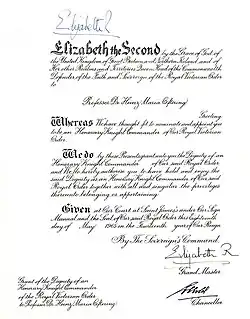 Elizabeth R
Elizabeth the Second by the Grace of God of
the United Kingdom of Great Britain and Northern Ireland and of
Her other Realms and Territories Queen Head of the Commonwealth
Defender of the Faith and Sovereign of the Royal Victorian Order
to
Professor Dr Heinz Maria
Greeting
Whereas We have thought fit to nominate and appoint you
to be an Honorary Knight Commander of Our Royal Victorian
Order.
We do by these Presents grant unto you the Dignity of an
Honorary Knight Commander of Our said Royal Order
and We do hereby authorise you to have hold and enjoy the
said Dignity as an Honorary Knight Commander of Our said
Royal Order together with all and singular the privileges
thereunto belonging or appertaining
Given at Our Court at Saint James's under Our Sign
Manual and the Seal of Our said Royal Order this Eighteenth
day of May 1965 in the Fourteenth year of Our Reign
By The Sovereign's Command.
Elizabeth R
Grand Master
Grant of the Dignity of an
Honorary Knight Commander
of the Royal Victorian Order
to Professor Dr Heinz Maria
Chancellor